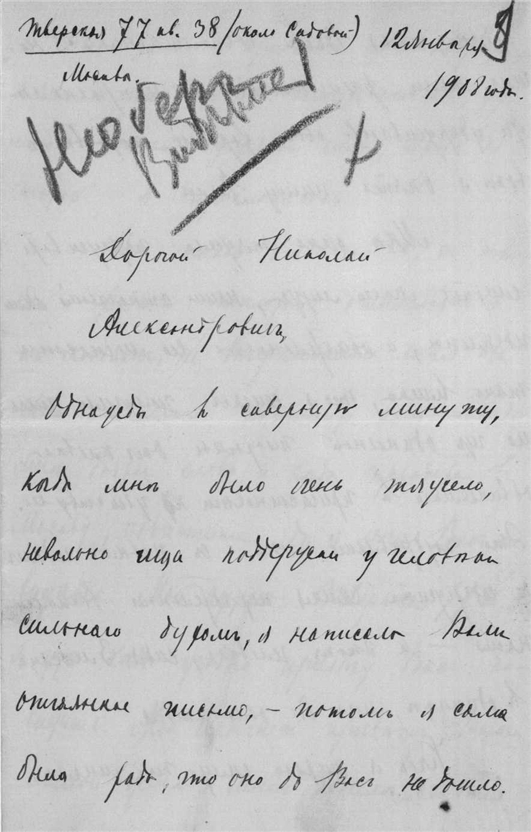 Тверская 77 кв. 38 (около Садовой) 12 января 8
Москва. 1908 года.
Дорогой Николай
Александровичъ,
Однажды въ скверную минуту,
когда мнѣ было очень тяжело,
невольно ища поддержки у человѣка
сильнаго духомъ, я написалъ Вамъ
отчаянное письмо, – потомъ я самъ
былъ радъ, что оно до Васъ не дошло.